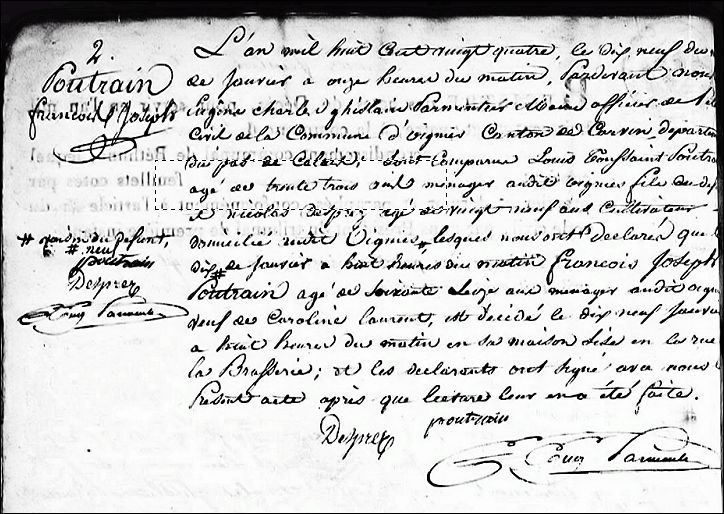 2.
Poutrain
francois Joseph
L'an mil huit cent vingt quatre, le dix neuf du
de Janvier a onze heures du matin, Pardevant nous
Eugène charle ghislain Parmentier Maire officier de l'
Civil de la Commune d'oignies Canton de Carvin, departem
du pas de Calais; sont Comparus Louis Toussaint Poutra
agé de trente trois ans ménager audit oignies fils du
et nicolas desprez agé de vingt neuf ans Cultivateur
domicilié audit Oignies, lesquels nous ont declaré que
dix # de Janvier a huit heures du matin francois Joseph
Poutrain agé de soixante seize ans menager audit oigni
veuf de Caroline laurent, est décédé le dix neuf Janvier
a huit heures du matin en sa maison sise en la rue
la Brasserie; et les declarants ont signé avec nous
Present acte après que lecture leur en a été faite.
# gendre du defunt,
# neuf
poutrain
Desprez
Eug Parmentier
Desprez
poutrain
Eug Parmentier